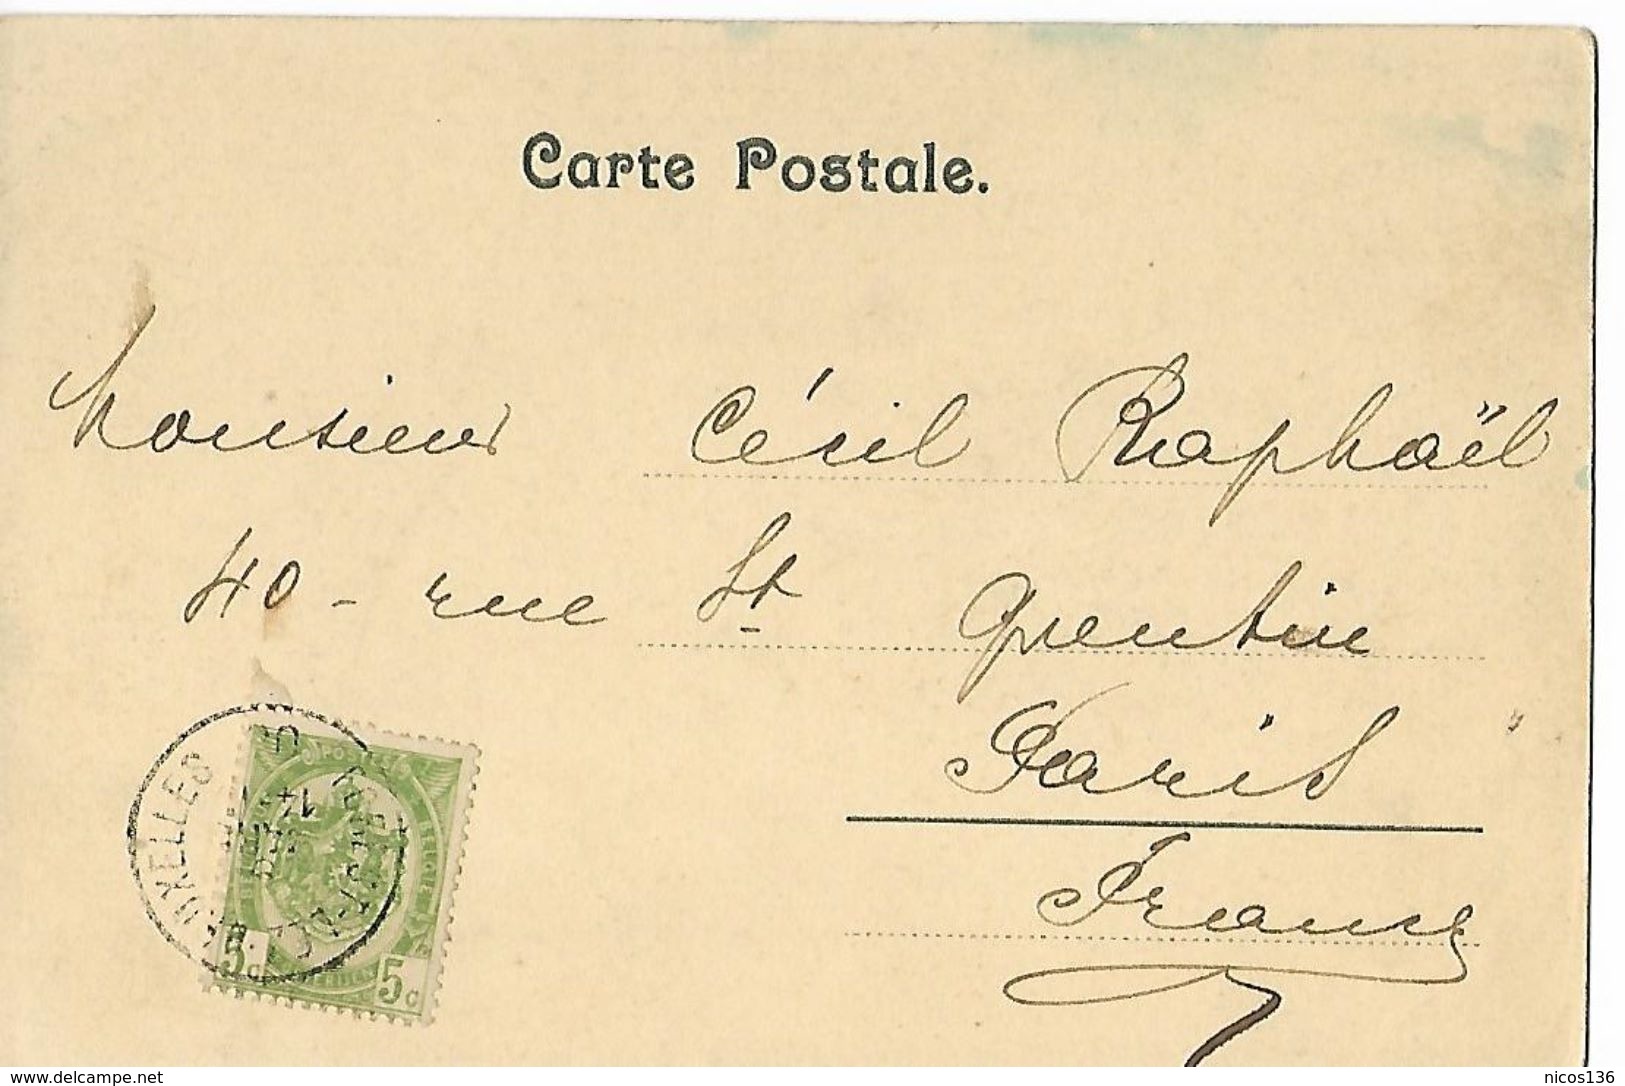 Carte Postale.
Monsieur Cécil Raphaël
40 - rue St Quentin
Paris
France
BRUXELLES
14
5c 5c
www.delcampe.net
nicos136